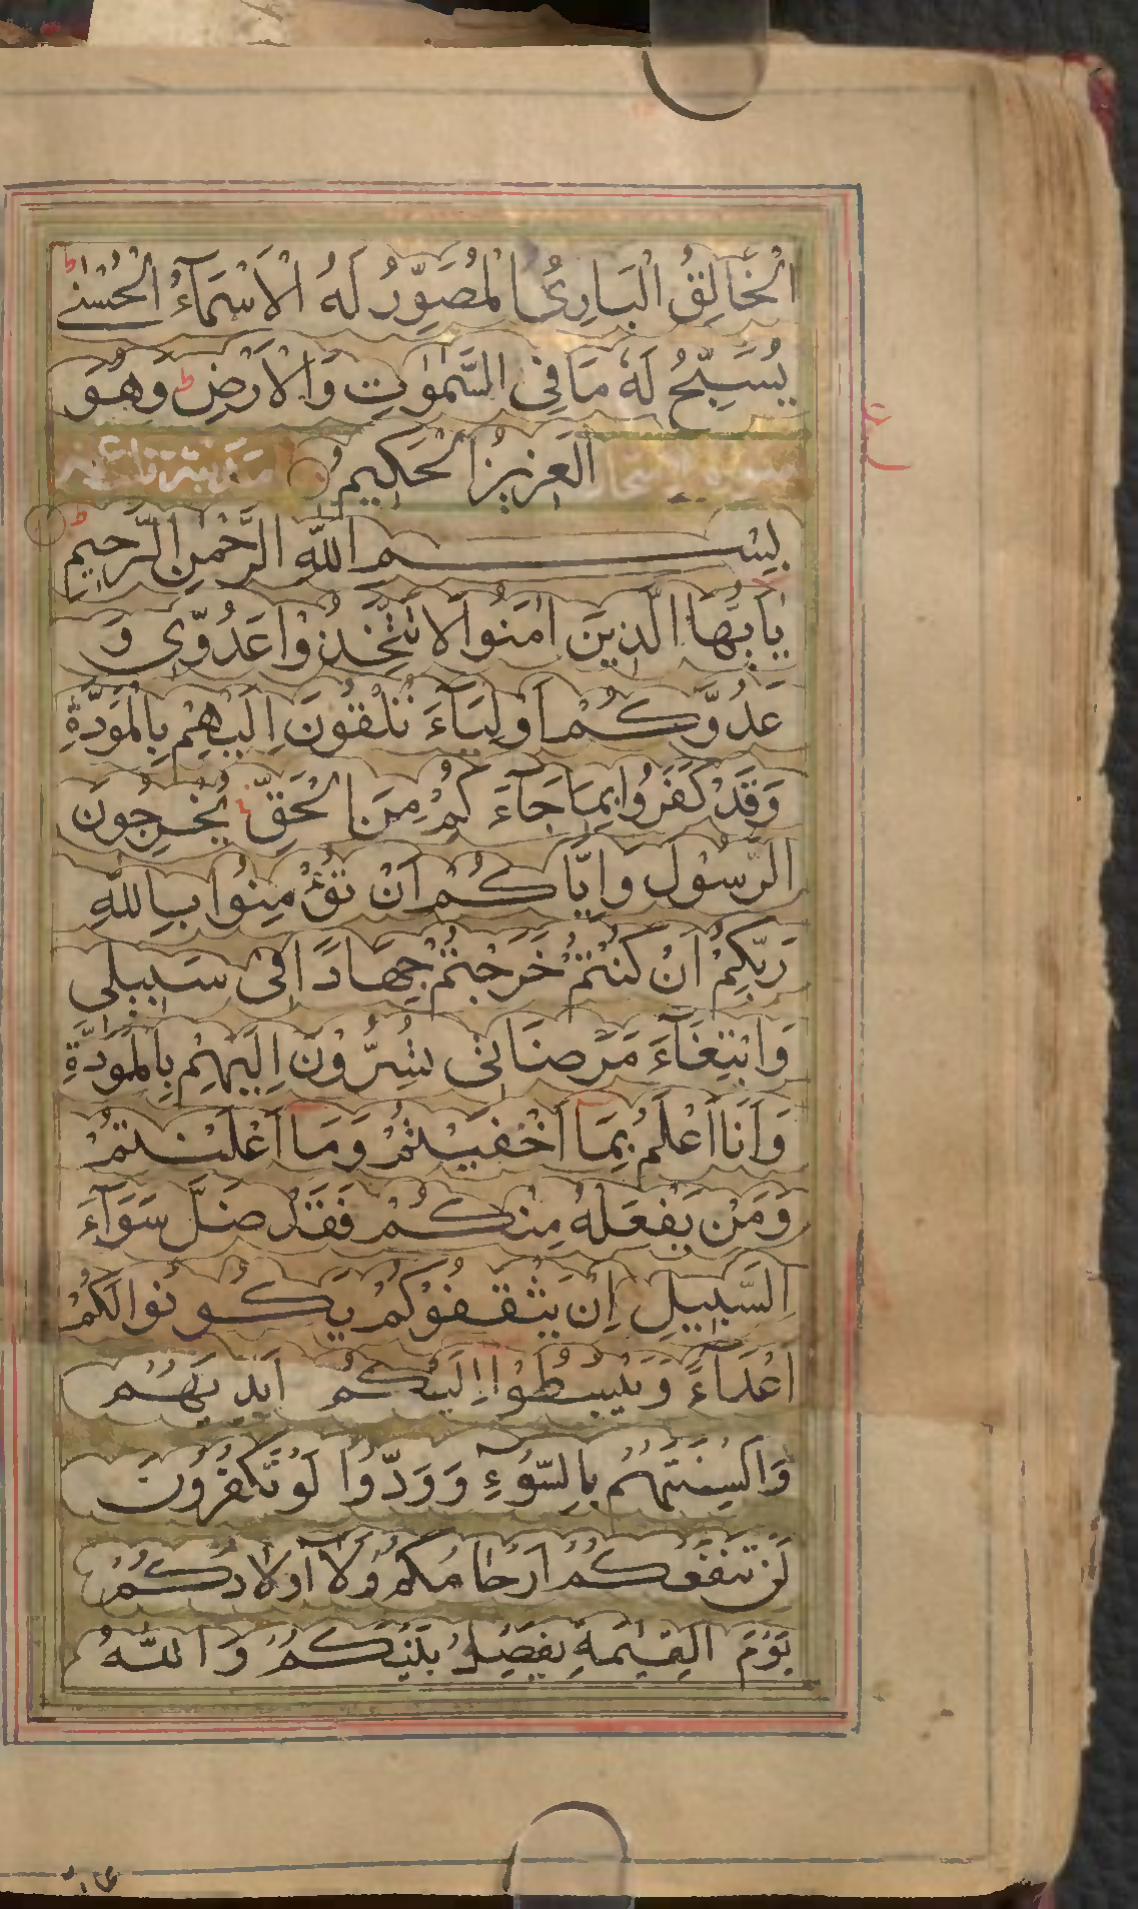 الْخَالِقُ الْبَارِئُ الْمُصَوِّرُ لَهُ الْاَسْمَآءُ الْحُسْنٰى ط
يُسَبِّحُ لَهٗ مَا فِى السَّمٰوٰتِ وَالْاَرْضِ ط وَهُوَ
الْعَزِيْزُ الْحَكِيْمُ
بِسْمِ اللّٰهِ الرَّحْمٰنِ الرَّحِيْمِ
يٰٓاَيُّهَا الَّذِيْنَ اٰمَنُوْا لَا تَتَّخِذُوْا عَدُوِّىْ وَ
عَدُوَّكُمْ اَوْلِيَآءَ تُلْقُوْنَ اِلَيْهِمْ بِالْمَوَدَّةِ
وَقَدْ كَفَرُوْا بِمَا جَآءَ كُمْ مِنَ الْحَقِّ يُخْرِجُوْنَ
الرَّسُوْلَ وَاِيَّاكُمْ اَنْ تُؤْمِنُوْا بِاللّٰهِ
رَبِّكُمْ اِنْ كُنْتُمْ خَرَجْتُمْ جِهَادًا فِىْ سَبِيْلِى
وَابْتِغَآءَ مَرْضَاتِى تُسِرُّوْنَ اِلَيْهِمْ بِالْمَوَدَّةِ
وَاَنَا اَعْلَمُ بِمَا اَخْفَيْتُمْ وَمَا اَعْلَنْتُمْ
وَمَنْ يَفْعَلْهُ مِنْكُمْ فَقَدْ ضَلَّ سَوَآءَ
السَّبِيْلِ اِنْ يَثْقَفُوْكُمْ يَكُوْنُوْا لَكُمْ
اَعْدَآءً وَيَبْسُطُوْا اِلَيْكُمْ اَيْدِيَهُمْ
وَاَلْسِنَتَهُمْ بِالسُّوْٓءِ وَوَدُّوْا لَوْ تَكْفُرُوْنَ
لَنْ تَنْفَعَكُمْ اَرْحَامُكُمْ وَلَآ اَوْلَادُكُمْ
يَوْمَ الْقِيٰمَةِ يَفْصِلُ بَيْنَكُمْ وَاللّٰهُ